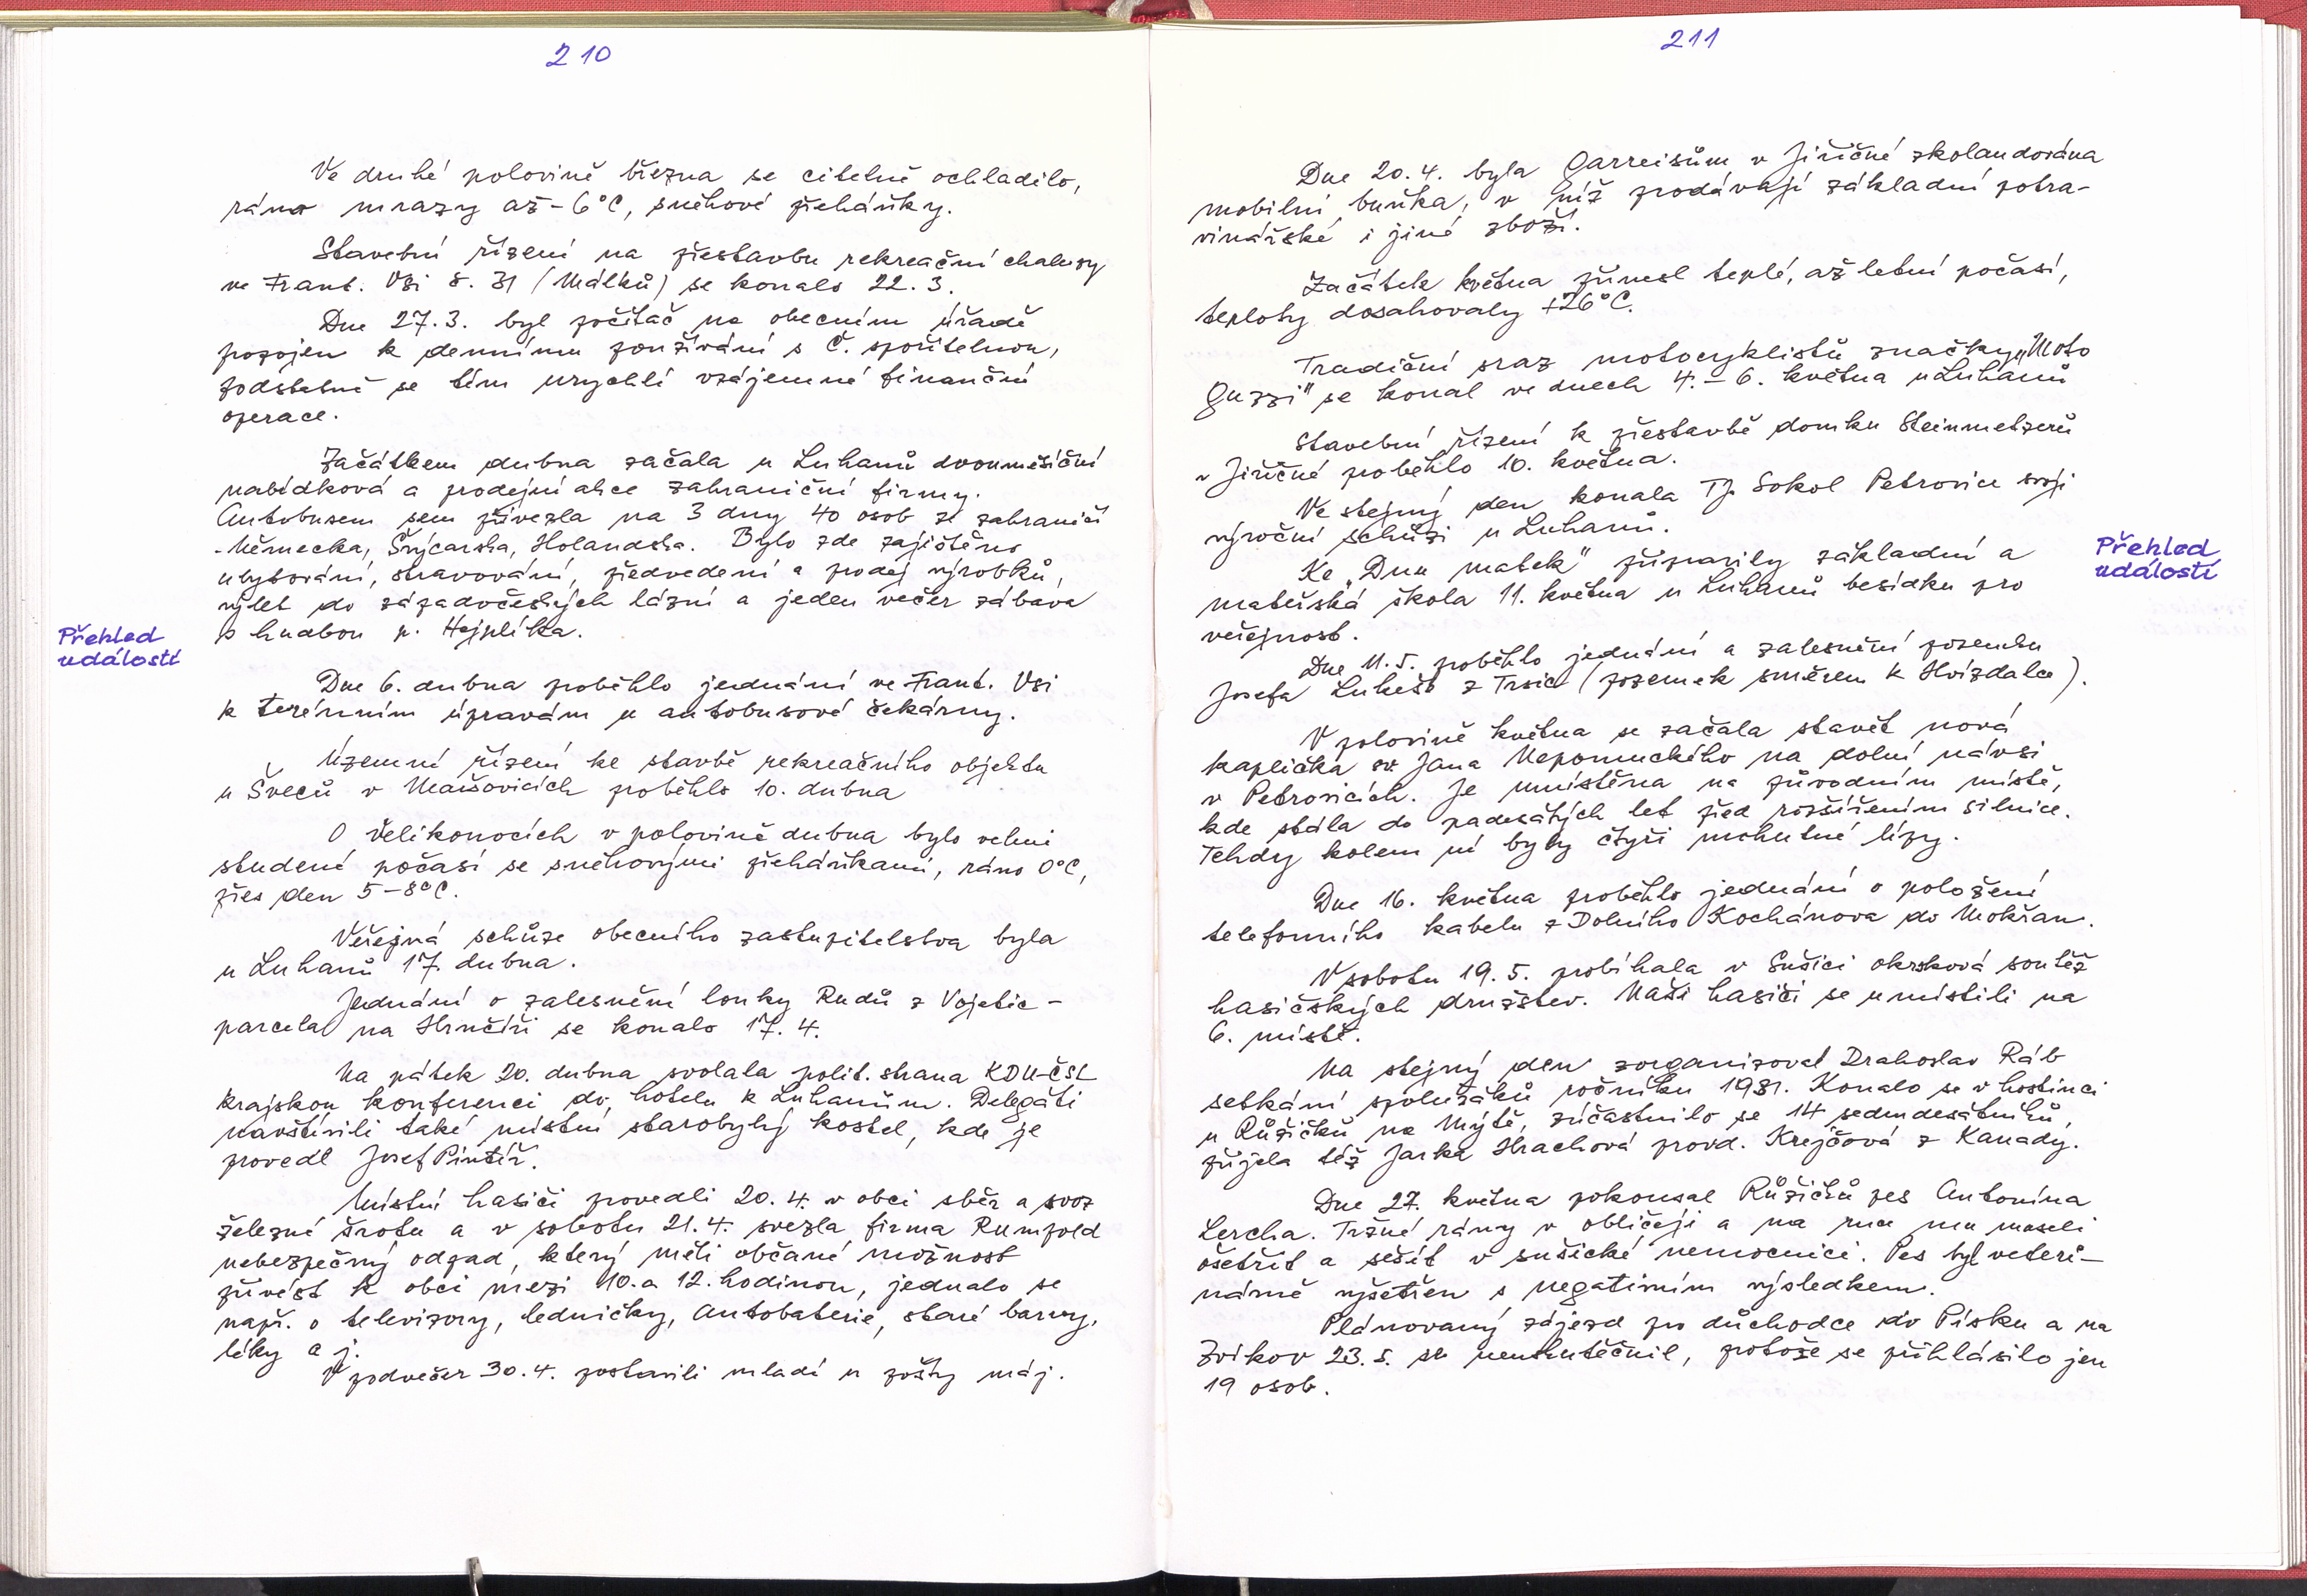 210
Ve druhé polovině března se citelně ochladilo,
ráno mrazy až -6°C, sněhové přeháňky.
Stavební řízení na přestavbu rekreační chalupy
ve Frant. Vsi č. 31 (Málků) se konalo 22. 3.
Dne 27. 3. byl počítač na obecním úřadě
propojen k dennímu používání s Č. spořitelnou,
podstatně se tím urychlí vzájemné finanční
operace.
Začátkem dubna začala u Luhanů dvouměsíční
nabídková a prodejní akce zahraniční firmy.
Autobusem sem přivezla na 3 dny 40 osob ze zahraničí
- Německa, Švýcarska, Holandska. Bylo zde zajištěno
ubytování, stravování, předvedení a prodej výrobků,
výlet do západočeských lázní a jeden večer zábava
s hudbou p. Hejplíka.
Přehled
událostí
Dne 6. dubna proběhlo jednání ve Frant. Vsi
k terénním úpravám u autobusové čekárny.
Územní řízení ke stavbě rekreačního objektu
u Šveců v Maršovicích proběhlo 10. dubna
O Velikonocích v polovině dubna bylo velmi
studené počasí se sněhovými přeháňkami, ráno 0°C,
přes den 5-8°C.
Veřejná schůze obecního zastupitelstva byla
u Luhanů 17. dubna.
Jednání o zalesnění louky Rudů z Vojetic -
parcela na Hrnčíři se konalo 17. 4.
Na pátek 20. dubna svolala polit. strana KDU-ČSL
krajskou konferenci do hotelu k Luhanům. Delegáti
navštívili také místní starobylý kostel, kde je
provedl Josef Pintíř.
Místní hasiči provedli 20. 4. v obci sběr a svoz
železné šrotu a v sobotu 21. 4. svezla firma Rumpold
nebezpečný odpad, který měli občané možnost
přivést k obci mezi 10. a 12. hodinou, jednalo se
např. o televizory, ledničky, autobaterie, staré barvy,
léky a j.
V podvečer 30. 4. postavili mladí u pošty máj.
211
Dne 20. 4. byla Garreisům v Jiřičné zkolaudována
mobilní buňka, v níž prodávají základní potra-
vinářské i jiné zboží.
Začátek května přinesl teplé, až letní počasí,
teploty dosahovaly +26°C.
Tradiční sraz motocyklistů značky „Moto
Guzzi" se konal ve dnech 4. - 6. května u Luhanů
Stavební řízení k přestavbě domku Steinmetzerů
v Jiřičné proběhlo 10. května.
Ve stejný den konala TJ. Sokol Petrovice svoji
výroční schůzi u Luhanů.
Ke „Dnu matek" připravily základní a
mateřská škola 11. května u Luhanů besídku pro
veřejnost.
Přehled
událostí
Dne 11. 5. proběhlo jednání a zalesnění pozemku
Josefa Lukeše z Trsic (pozemek směrem k Hvízdalce).
V polovině května se začala stavět nová
kaplička sv. Jana Nepomuckého na dolní návsi
v Petrovicích. Je umístěna na původním místě,
kde stála do padesátých let před rozšířením silnice.
Tehdy kolem ní byly čtyři mohutné lípy.
Dne 16. května proběhlo jednání o položení
telefonního kabelu z Dolního Kochánova do Mokřan.
V sobotu 19. 5. probíhala v Sušici okrsková soutěž
hasičských družstev. Naši hasiči se umístili na
6. místě.
Na stejný den zorganizoval Drahoslav Ráb
setkání spolužáků ročníku 1931. Konalo se v hostinci
u Růžičků na Mýtě, zúčastnilo se 14 sedmdesátníků,
přijela též Jarka Hrachová provd. Krejčová z Kanady.
Dne 27. května pokousal Růžičků pes Antonína
Lercha. Tržné rány v obličeji a na ruce mu museli
ošetřit a sešít v sušické nemocnici. Pes byl veteri-
nárně vyšetřen s negativním výsledkem.
Plánovaný zájezd pro důchodce do Písku a na
Zvíkov 23. 5. se neuskutečnil, protože se přihlásilo jen
19 osob.